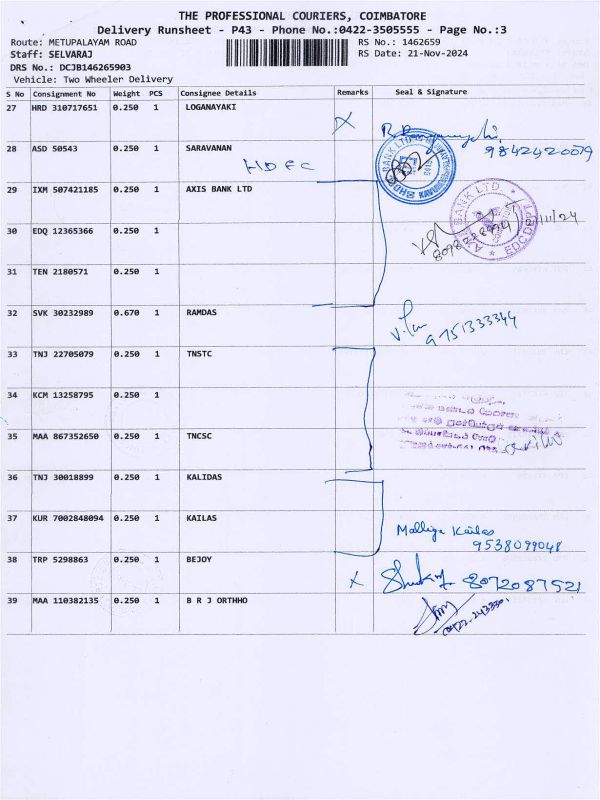 THE PROFESSIONAL COURIERS, COIMBATORE
Delivery Runsheet - P43 - Phone No.:0422-3505555 - Page No.:3
Route: METUPALAYAM ROAD RS No.: 1462659
Staff: SELVARAJ RS Date: 21-Nov-2024
DRS No.: DCJB146265903
Vehicle: Two Wheeler Delivery
S No Consignment No Weight PCS Consignee Details Remarks Seal & Signature
27 HRD 310717651 0.250 1 LOGANAYAKI
9842420079
28 ASD 50543 0.250 1 SARAVANAN
HDFC
29 IXM 507421185 0.250 1 AXIS BANK LTD
30 EDQ 12365366 0.250 1
31 TEN 2180571 0.250 1
32 SVK 30232989 0.670 1 RAMDAS
9751333344
33 TNJ 22705079 0.250 1 TNSTC
34 KCM 13258795 0.250 1
35 MAA 867352650 0.250 1 TNCSC
36 TNJ 30018899 0.250 1 KALIDAS
37 KUR 7002848094 0.250 1 KAILAS
Malliga Kailas
9538099048
38 TRP 5298863 0.250 1 BEJOY
X 8072087521
39 MAA 110382135 0.250 1 B R J ORTHHO